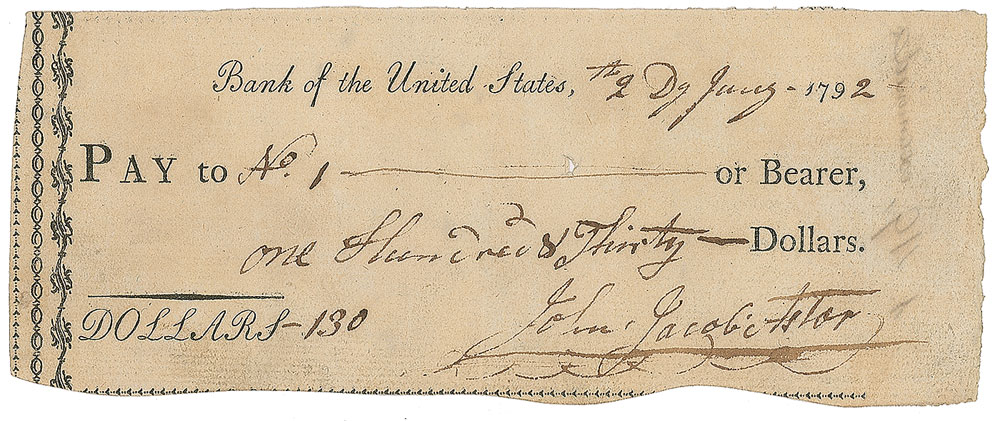 Bank of the United States, th 2 Dy Jany - 1792
PAY to No. 1 or Bearer,
one Hundred & Thirty Dollars.
DOLLARS - 130
John Jacob Astor